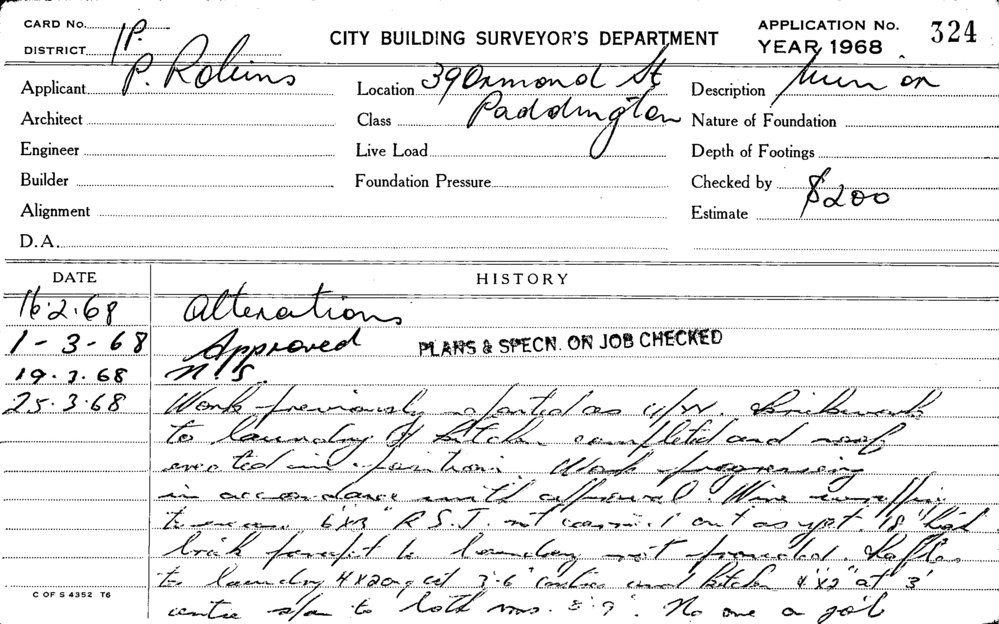 CARD No. 1P.
DISTRICT
CITY BUILDING SURVEYOR'S DEPARTMENT
APPLICATION No. 324
YEAR 1968
Applicant P. Robins
Location 39 Ormond St
Paddington
Description
Architect
Class
Nature of Foundation
Engineer
Live Load
Depth of Footings
Builder
Foundation Pressure
Checked by
Alignment
Estimate $200
D.A.
DATE HISTORY
16.2.68 Alterations
1-3-68 Approved PLANS & SPECN. ON JOB CHECKED
19.3.68 N.S.
25.3.68 Work previously reported as U/W. Brickwork
to laundry & kitchen completed and roof
erected in position. Work progressing
in accordance with approval. Wire
6"x3" R.S.J. not carried out as yet. 18" high
brick parapet to laundry not provided. Rafters
to laundry 3'6" centres and kitchen 4"x2" at 3'
centre span to both rms. 8'9". No one on job
C OF S 4352 T6